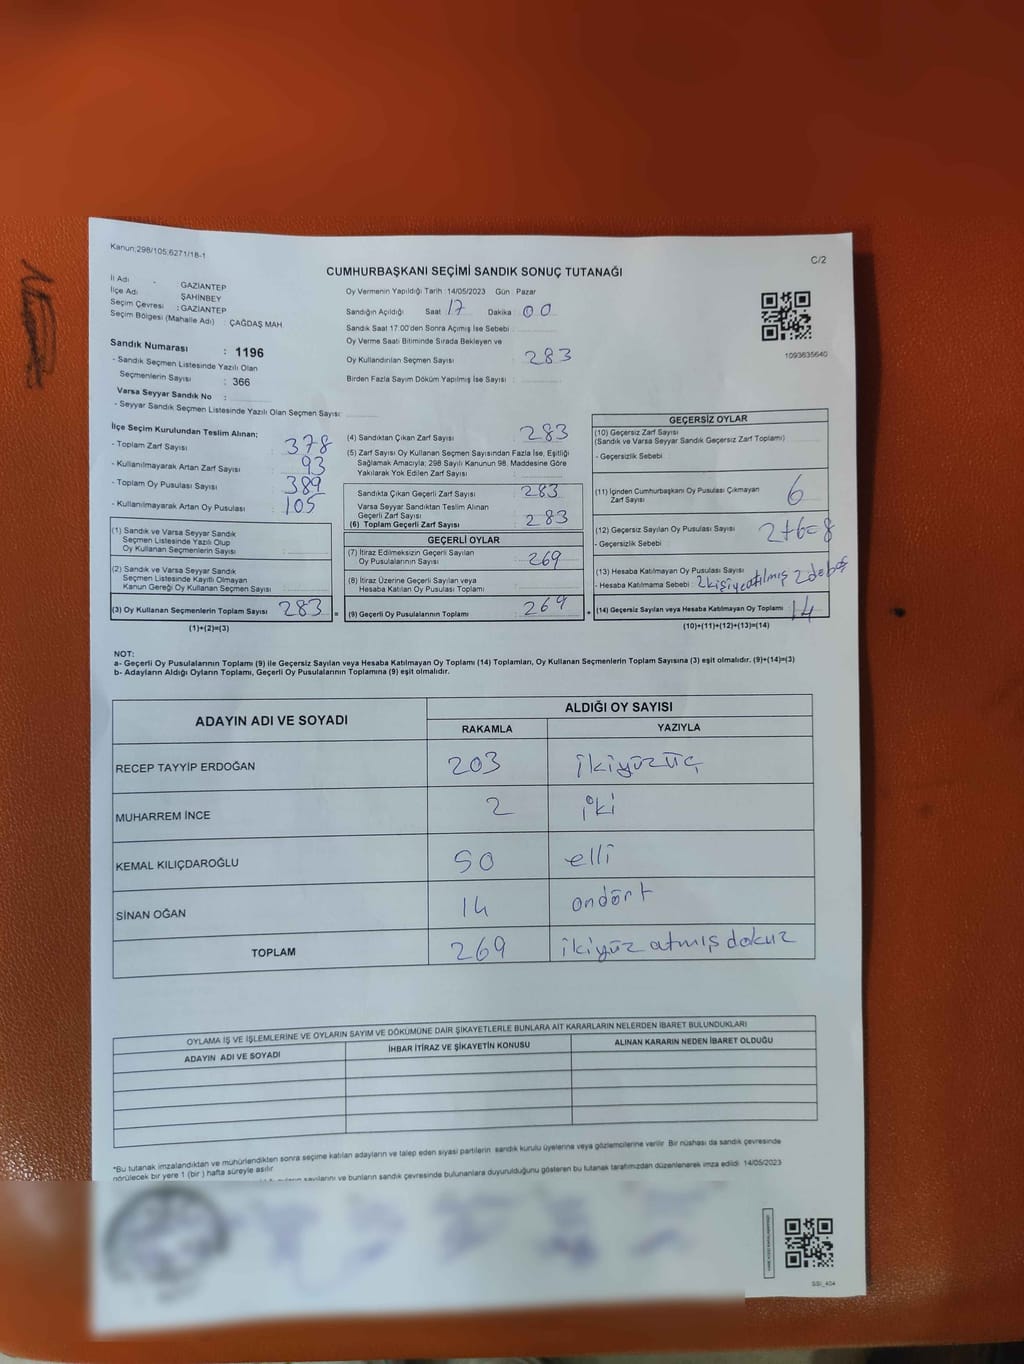 Kanun:298/105;6271/18-1
C/2
CUMHURBAŞKANI SEÇİMİ SANDIK SONUÇ TUTANAĞI
İl Adı : GAZİANTEP
İlçe Adı : ŞAHİNBEY
Seçim Çevresi : GAZİANTEP
Seçim Bölgesi (Mahalle Adı) : ÇAĞDAŞ MAH.
Sandık Numarası : 1196
- Sandık Seçmen Listesinde Yazılı Olan
Seçmenlerin Sayısı : 366
Varsa Seyyar Sandık No :
- Seyyar Sandık Seçmen Listesinde Yazılı Olan Seçmen Sayısı:
Oy Vermenin Yapıldığı Tarih : 14/05/2023 Gün : Pazar
Sandığın Açıldığı Saat : 17 Dakika : 00
Sandık Saat 17:00'den Sonra Açımış İse Sebebi :
Oy Verme Saati Bitiminde Sırada Bekleyen ve
Oy Kullandırılan Seçmen Sayısı : 283
Birden Fazla Sayım Döküm Yapılmış İse Sayısı :
1093635640
İlçe Seçim Kurulundan Teslim Alınan;
- Toplam Zarf Sayısı : 378
- Kullanılmayarak Artan Zarf Sayısı : 93
- Toplam Oy Pusulası Sayısı : 389
- Kullanılmayarak Artan Oy Pusulası : 105
(1) Sandık ve Varsa Seyyar Sandık
Seçmen Listesinde Yazılı Olup
Oy Kullanan Seçmenlerin Sayısı :
(2) Sandık ve Varsa Seyyar Sandık
Seçmen Listesinde Kayıtlı Olmayan
Kanun Gereği Oy Kullanan Seçmen Sayısı :
(3) Oy Kullanan Seçmenlerin Toplam Sayısı : 283 =
(1)+(2)=(3)
(4) Sandıktan Çıkan Zarf Sayısı : 283
(5) Zarf Sayısı Oy Kullanan Seçmen Sayısından Fazla İse, Eşitliği
Sağlamak Amacıyla; 298 Sayılı Kanunun 98. Maddesine Göre
Yakılarak Yok Edilen Zarf Sayısı :
Sandıkta Çıkan Geçerli Zarf Sayısı : 283
Varsa Seyyar Sandıktan Teslim Alınan
Geçerli Zarf Sayısı :
(6) Toplam Geçerli Zarf Sayısı : 283
GEÇERLİ OYLAR
(7) İtiraz Edilmeksizin Geçerli Sayılan
Oy Pusulalarının Sayısı : 269
(8) İtiraz Üzerine Geçerli Sayılan veya
Hesaba Katılan Oy Pusulası Toplamı :
(9) Geçerli Oy Pusulalarının Toplamı : 269 +
GEÇERSİZ OYLAR
(10) Geçersiz Zarf Sayısı
(Sandık ve Varsa Seyyar Sandık Geçersiz Zarf Toplamı) :
- Geçersizlik Sebebi :
(11) İçinden Cumhurbaşkanı Oy Pusulası Çıkmayan
Zarf Sayısı : 6
(12) Geçersiz Sayılan Oy Pusulası Sayısı : 2+6=8
- Geçersizlik Sebebi :
(13) Hesaba Katılmayan Oy Pusulası Sayısı :
- Hesaba Katılmama Sebebi : 2 kişiye atılmış 2 de boş
(14) Geçersiz Sayılan veya Hesaba Katılmayan Oy Toplamı : 14
(10)+(11)+(12)+(13)=(14)
NOT:
a- Geçerli Oy Pusulalarının Toplamı (9) ile Geçersiz Sayılan veya Hesaba Katılmayan Oy Toplamı (14) Toplamları, Oy Kullanan Seçmenlerin Toplam Sayısına (3) eşit olmalıdır. (9)+(14)=(3)
b- Adayların Aldığı Oyların Toplamı, Geçerli Oy Pusulalarının Toplamına (9) eşit olmalıdır.
ADAYIN ADI VE SOYADI ALDIĞI OY SAYISI
RAKAMLA YAZIYLA
RECEP TAYYİP ERDOĞAN 203 ikiyüzüç
MUHARREM İNCE 2 iki
KEMAL KILIÇDAROĞLU 50 elli
SİNAN OĞAN 14 ondört
TOPLAM 269 ikiyüz atmış dokuz
OYLAMA İŞ VE İŞLEMLERİNE VE OYLARIN SAYIM VE DÖKÜMÜNE DAİR ŞİKAYETLERLE BUNLARA AİT KARARLARIN NELERDEN İBARET BULUNDUKLARI
ADAYIN ADI VE SOYADI İHBAR İTİRAZ VE ŞİKAYETİN KONUSU ALINAN KARARIN NEDEN İBARET OLDUĞU
*Bu tutanak imzalandıktan ve mühürlendikten sonra seçime katılan adayların ve talep eden siyasi partilerin sandık kurulu üyelerine veya gözlemcilerine verilir. Bir nüshası da sandık çevresinde
görülecek bir yere 1 (bir ) hafta süreyle asılır.
sayılarını ve bunların sandık çevresinde bulunanlara duyurulduğunu gösteren bu tutanak tarafımızdan düzenlenerek imza edildi. 14/05/2023
SSI_404